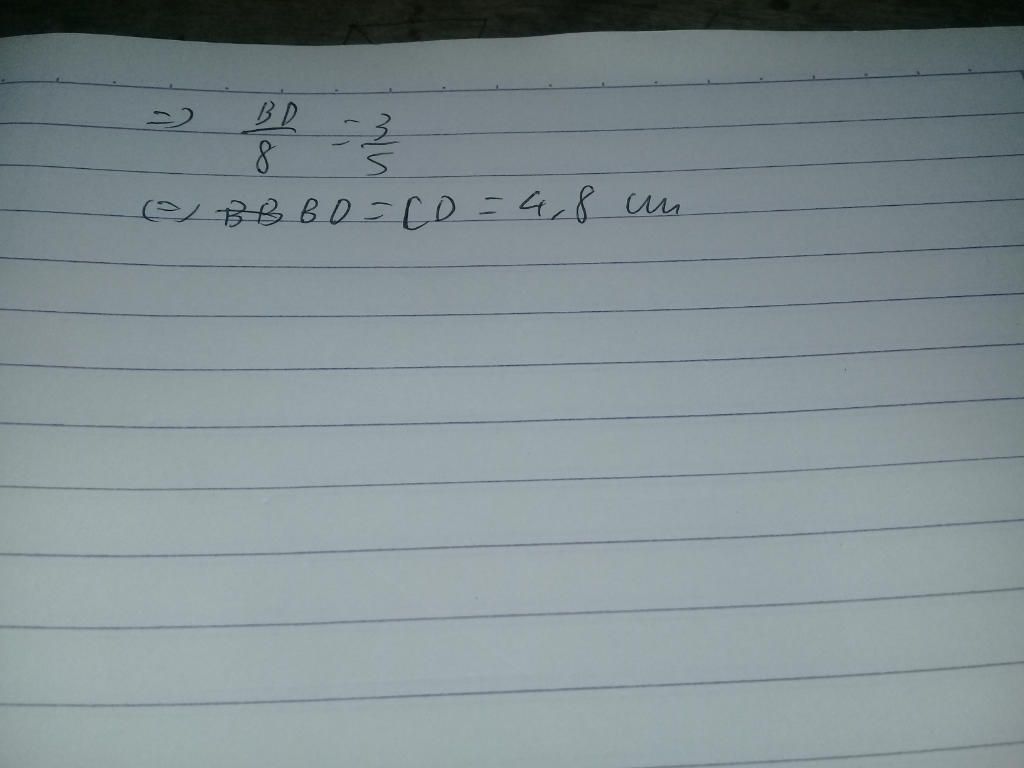 => BD/8 = 3/5
<=> BD = CD = 4,8 cm